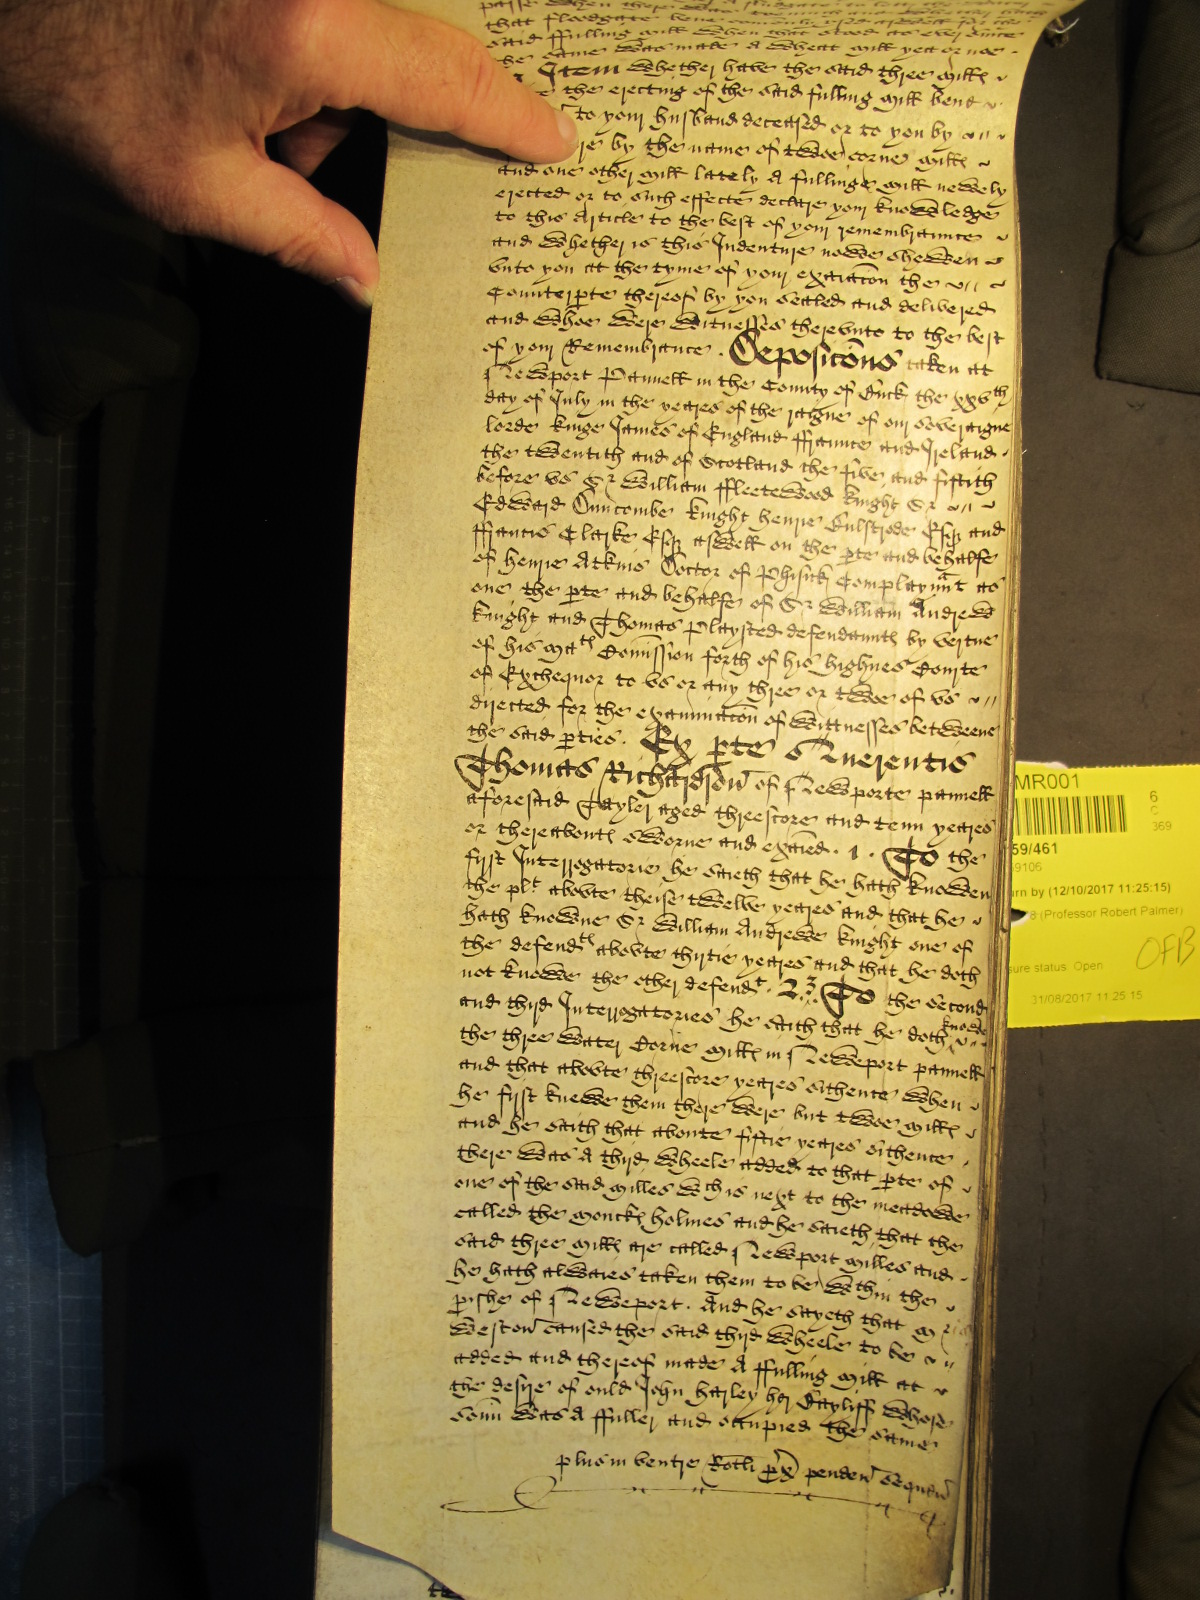 that floodgate bene comonly used aswell for the
said ffulling mill when that stood as ever since
the same was made A wheat mill yea or noe
Item whether have the said three mills
the erecting of the said fulling mill bene
to yor husband deceased or to you by
by the name of twoe corne mills
and one other mill lately A fullinge mill newely
erected or to such effecte declare yor knowledge
to this Article to the best of yor remembraunce
and whether is this Indenture nowe shewen
vnto you at the tyme of yor exaiacon the
Counterpte thereof by you sealed and delivered
and whoe were Witnesses therevnto to the best
of yor Remembrance . Deposicons taken at
Newport Pannell in the County of Buck the xxvth
day of July in the yeares of the raigne of our soveraigne
lorde kinge James of England ffraunce and Ireland
the twentith and of Scotland the five and fiftith
before vs Sr William ffleetewood knight Sr
Edward Duncombe knight Henrie Bulstrode Esqr and
ffrancis Clarke Esqr aswell on the pte and behalfe
of Henrie Atkins Doctor of Phisick Complaynt as
one the pte and behalfe of Sr William Andrew
knight and Thomas Playsted defendaunts by vertue
of his Mats Comission forth of his highnes Courte
of Exchequor to vs or any three or twoe of vs
directed for the examinacon of Wittnesses betweene
the said pties . Ex pte Querentis
Thomas Richardson of Newporte pannell
aforesaid Tayler aged threescore and tenn yeares
or thereabouts sworne and exaied . 1 . To the
first Interrogatorie he saieth that he hath knowen
the plt aboute theise twelve yeares and that he
hath knowne Sr William Andrewe knight one of
the defendts aboute thirtie yeares and that he doth
not knowe the other defendt . 2. 3. To the second
and third Interrogatories he saith that he doth knowe
the three water Corne mills in Neweport pannell
and that aboute threescore yeares sithence when
he first knewe them there were but twoe mills
and he saith that aboute fiftie yeares sithence
there was A third wheele added to that pte of
one of the said milles wch is next to the meadowe
called the Moncks holmes and he saieth that the
said three mills are called Newport milles and
he hath alwaies taken them to be wthin the
pishe of Neweport . And he sayeth that Mris
Weston caused the said third wheele to be
added and thereof made A ffulling mill at
the desire of ould John Harley her Bayliff whose
sonn was A ffuller and occupied the same
plus in ventre Rotli px penden sequen
MR001
6
C
369
59/461
9106
urn by (12/10/2017 11:25:15)
8 (Professor Robert Palmer)
OFB
sure status Open
31/08/2017 11 25 15